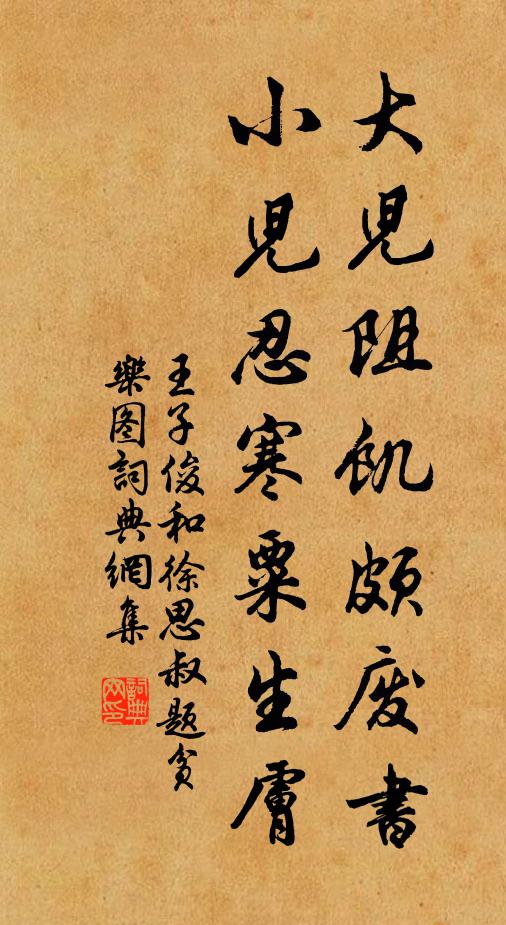 大児阻飢頗废書
小児忍寒粟生膚
王子俊和徐思叔題貧
樂图詞典網集
詞典
网印